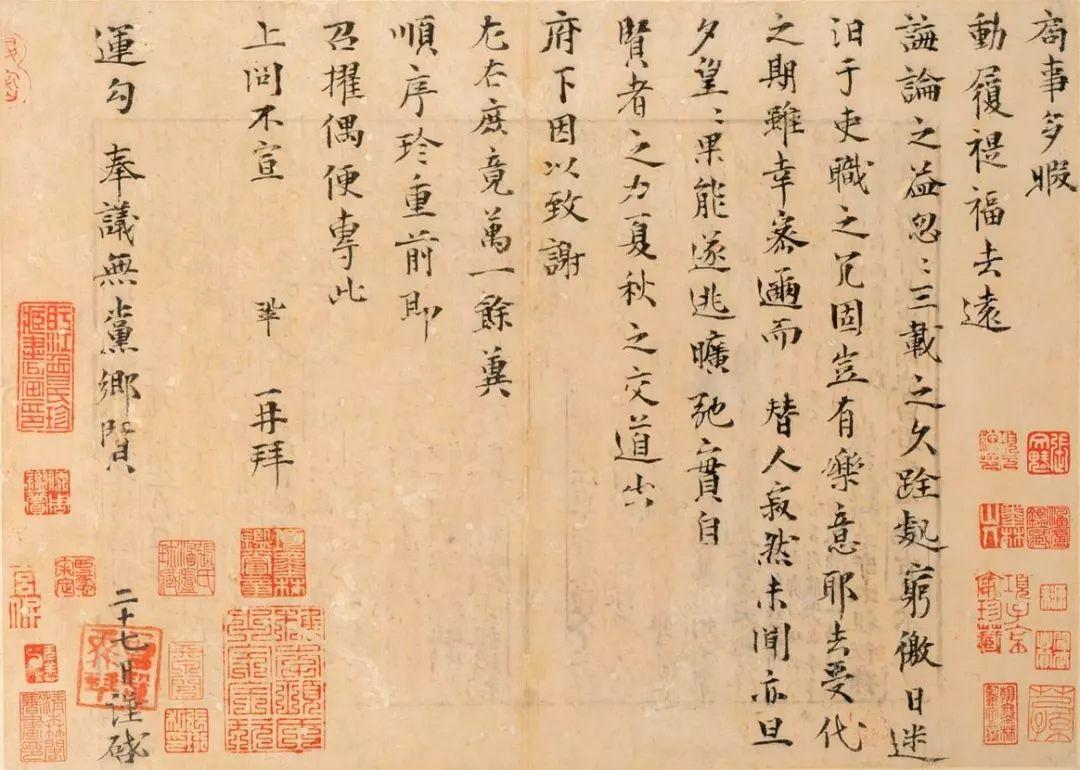 局事多暇
動履禔福去遠
誨論之益忽〻三載之久跧處窮徼日迷
汩于吏職之冗固豈有樂意耶去受代
之期雖幸密邇而　替人寂然未聞亦旦
夕望〻果能遂逃曠弛實自
賢者之力夏秋之交道出
府下因以致謝
左右庶竟萬一餘冀
順序珍重前即
召擢偶便專此
上問不宣　鞏　再拜
運勾　奉議無黨鄉賢　二十七日謹啟